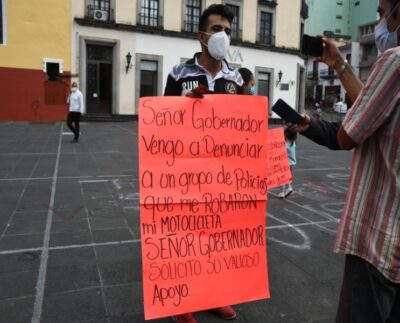 RUN
SEÑOR GOBERNADOR
VENGO A DENUNCIAR
A UN GRUPO DE POLICÍAS
QUE ME ROBARON
MI MOTOCICLETA
SEÑOR GOBERNADOR
SOLICITO SU VALIOSO
APOYO.